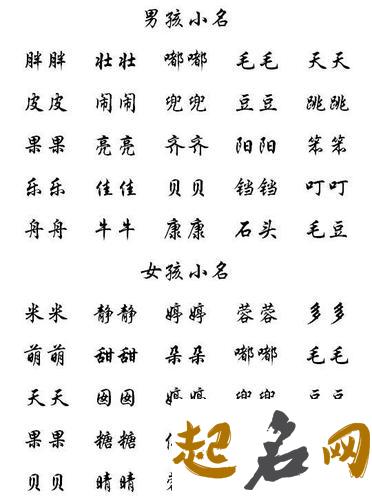 男孩小名
胖胖 壮壮 嘟嘟 毛毛 天天
皮皮 闹闹 兜兜 豆豆 跳跳
果果 亮亮 齐齐 阳阳 笨笨
乐乐 佳佳 贝贝 铛铛 叮叮
舟舟 牛牛 康康 石头 毛豆
女孩小名
米米 静静 婷婷 蓉蓉 多多
萌萌 甜甜 朵朵 嘟嘟 毛毛
天天 囡囡
果果 糖糖
贝贝 晴晴
起名网